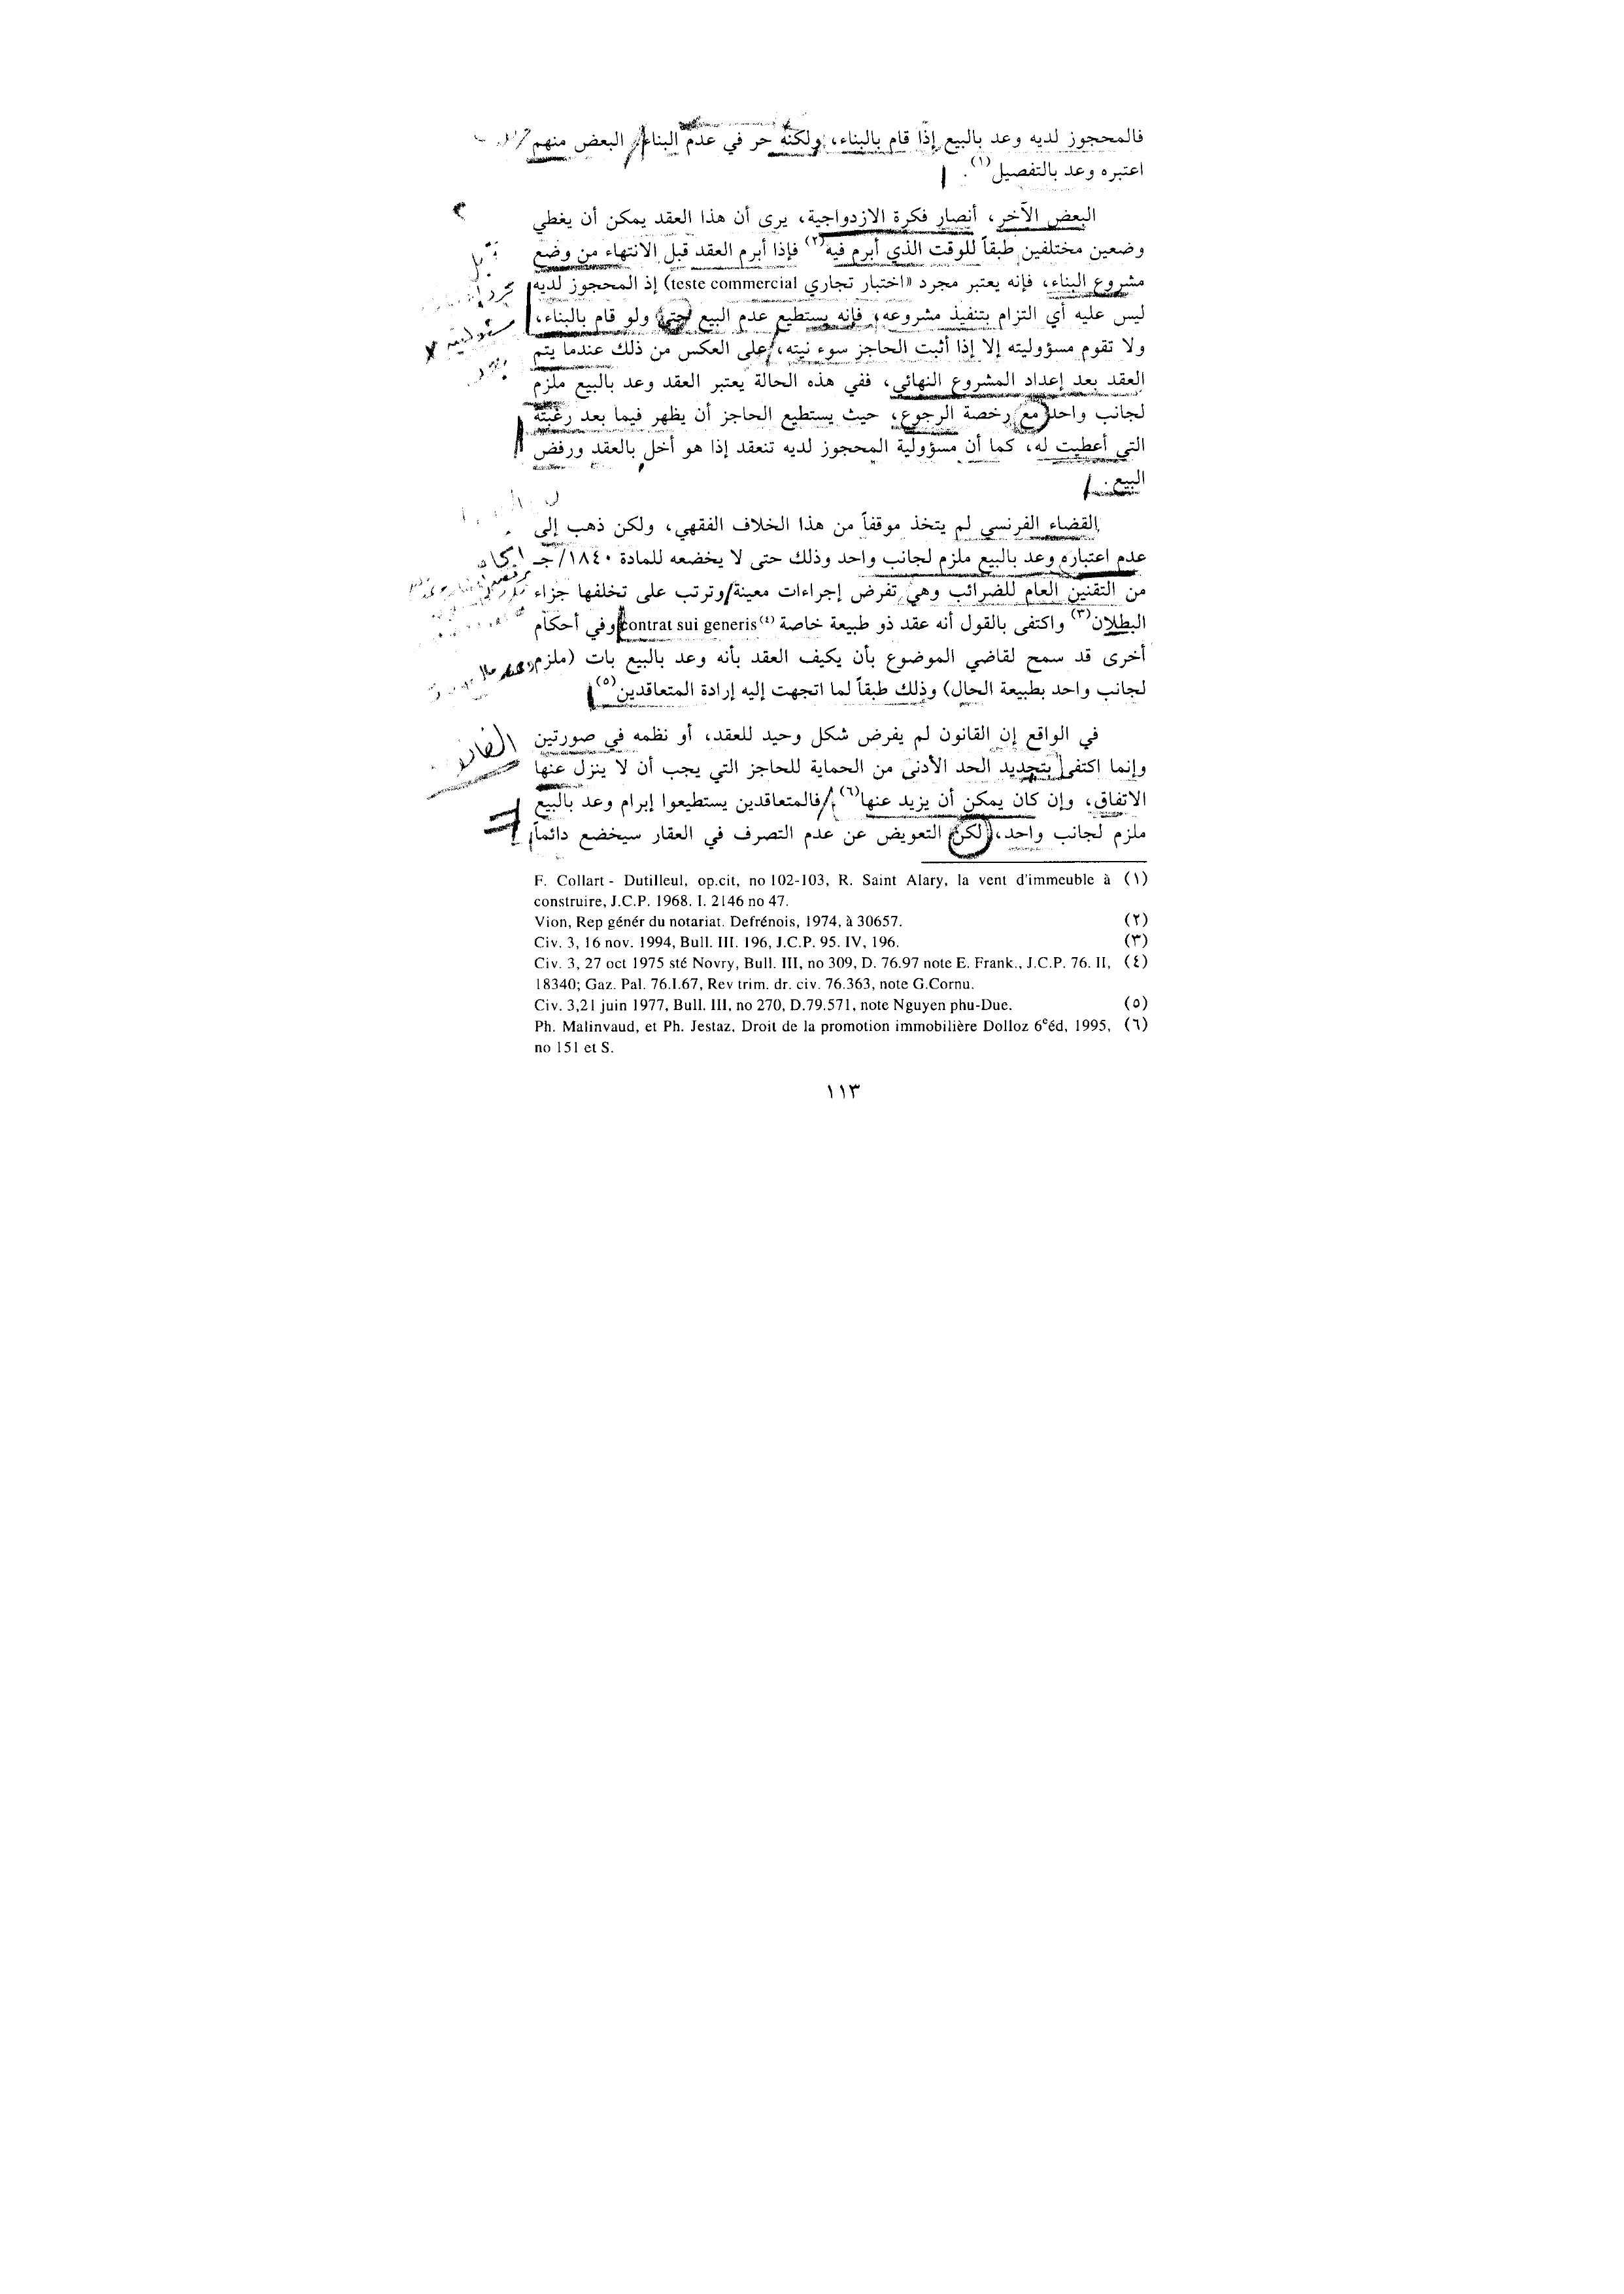 فالمحجوز لديه وعد بالبيع إذا قام بالبناء، ولكنه حر في عدم البناء، البعض منهم
اعتبره وعد بالتفصيل(١).
البعض الآخر، أنصار فكرة الازدواجية، يرى أن هذا العقد يمكن أن يغطي
وضعين مختلفين طبقاً للوقت الذي أبرم فيه(٢) فإذا أبرم العقد قبل الانتهاء من وضع
مشروع البناء، فإنه يعتبر مجرد «اختبار تجاري teste commercial) إذ المحجوز لديه
ليس عليه أي التزام بتنفيذ مشروعه، فإنه يستطيع عدم البيع حتى ولو قام بالبناء،
ولا تقوم مسؤوليته إلا إذا أثبت الحاجز سوء نيته، على العكس من ذلك عندما يتم
العقد بعد إعداد المشروع النهائي، ففي هذه الحالة يعتبر العقد وعد بالبيع ملزم
لجانب واحد مع رخصة الرجوع، حيث يستطيع الحاجز أن يظهر فيما بعد رغبته
التي أعطيت له، كما أن مسؤولية المحجوز لديه تنعقد إذا هو أخل بالعقد ورفض
البيع.
القضاء الفرنسي لم يتخذ موقفاً من هذا الخلاف الفقهي، ولكن ذهب إلى
عدم اعتباره وعد بالبيع ملزم لجانب واحد وذلك حتى لا يخضعه للمادة ١٨٤٠/جـ
من التقنين العام للضرائب وهي تفرض إجراءات معينة وترتب على تخلفها جزاء
البطلان(٣) واكتفى بالقول أنه عقد ذو طبيعة خاصة contrat sui generis(٤) وفي أحكام
أخرى قد سمح لقاضي الموضوع بأن يكيف العقد بأنه وعد بالبيع بات (ملزم
لجانب واحد بطبيعة الحال) وذلك طبقاً لما اتجهت إليه إرادة المتعاقدين(٥)
في الواقع إن القانون لم يفرض شكل وحيد للعقد، أو نظمه في صورتين
وإنما اكتفى بتحديد الحد الأدنى من الحماية للحاجز التي يجب أن لا ينزل عنها
الاتفاق، وإن كان يمكن أن يزيد عنها(٦)، فالمتعاقدين يستطيعوا إبرام وعد بالبيع
ملزم لجانب واحد، لكن التعويض عن عدم التصرف في العقار سيخضع دائماً
(١) F. Collart - Dutilleul, op.cit, no 102-103, R. Saint Alary, la vent d'immeuble à
construire, J.C.P. 1968. I. 2146 no 47.
(٢) Vion, Rep génér du notariat. Defrénois, 1974, à 30657.
(٣) Civ. 3, 16 nov. 1994, Bull. III. 196, J.C.P. 95. IV, 196.
(٤) Civ. 3, 27 oct 1975 sté Novry, Bull. III, no 309, D. 76.97 note E. Frank., J.C.P. 76. II,
18340; Gaz. Pal. 76.I.67, Rev trim. dr. civ. 76.363, note G.Cornu.
(٥) Civ. 3,21 juin 1977, Bull. III, no 270, D.79.571, note Nguyen phu-Duc.
(٦) Ph. Malinvaud, et Ph. Jestaz, Droit de la promotion immobilière Dolloz 6eéd, 1995,
no 151 et S.
١١٣